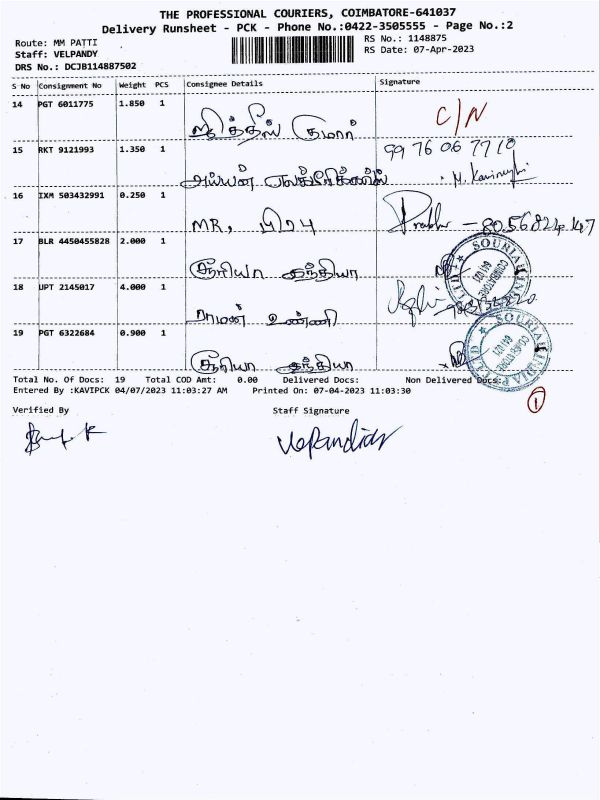 THE PROFESSIONAL COURIERS, COIMBATORE-641037
Delivery Runsheet - PCK - Phone No.:0422-3505555 - Page No.:2
Route: MM PATTI
RS No.: 1148875
Staff: VELPANDY
RS Date: 07-Apr-2023
DRS No.: DCJB114887502
S No Consignment No Weight PCS Consignee Details Signature
14 PGT 6011775 1.850 1
குமார் C/N
15 RKT 9121993 1.350 1 99 76 06 7710
அய்யன் எலக்ட்ரிக்கல்ஸ்
16 IXM 503432991 0.250 1
MR, பிரபு Prabhu - 8056824147
17 BLR 4450455828 2.000 1
சூரியா இந்தியா
18 UPT 2145017 4.000 1
ராமன் உண்ணி
19 PGT 6322684 0.900 1
சூரியா இந்தியா
Total No. Of Docs: 19 Total COD Amt: 0.00 Delivered Docs: Non Delivered Docs:
Entered By :KAVIPCK 04/07/2023 11:03:27 AM Printed On: 07-04-2023 11:03:30
1
Verified By Staff Signature